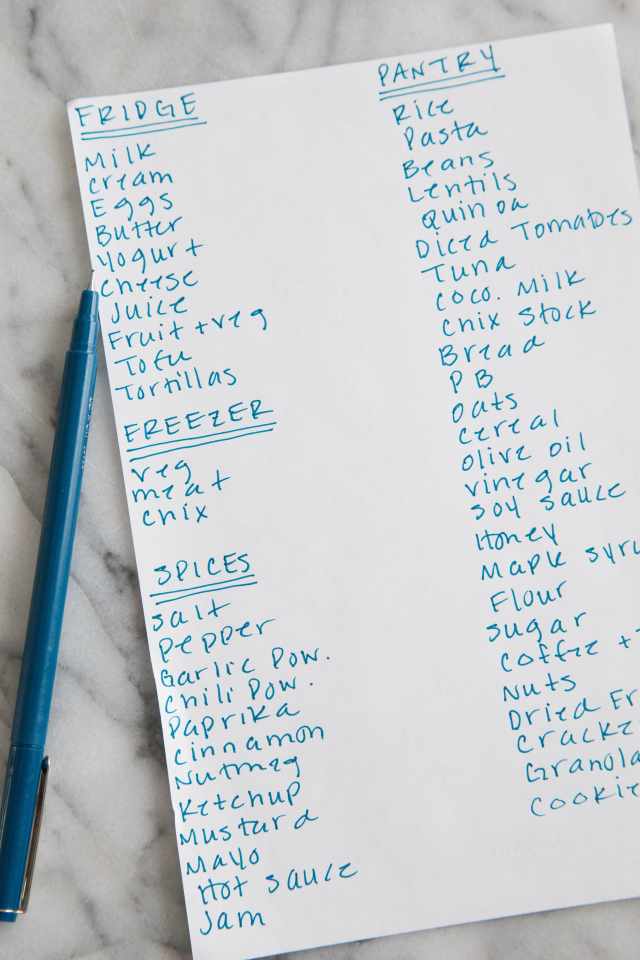 FRIDGE
Milk
cream
Eggs
Butter
yogurt
cheese
Juice
Fruit + veg
Tofu
Tortillas
FREEZER
veg
meat
chix
SPICES
salt
pepper
Garlic Pow.
Chili Pow.
Paprika
cinnamon
Nutmeg
Ketchup
Mustard
Mayo
Hot sauce
Jam
PANTRY
Rice
Pasta
Beans
Lentils
Quinoa
Diced Tomatoes
Tuna
coco. Milk
chix stock
Bread
PB
Oats
cereal
olive oil
vinegar
soy sauce
Honey
Maple syru
Flour
sugar
coffee +
Nuts
Dried Fr
Cracke
Granola
cookie